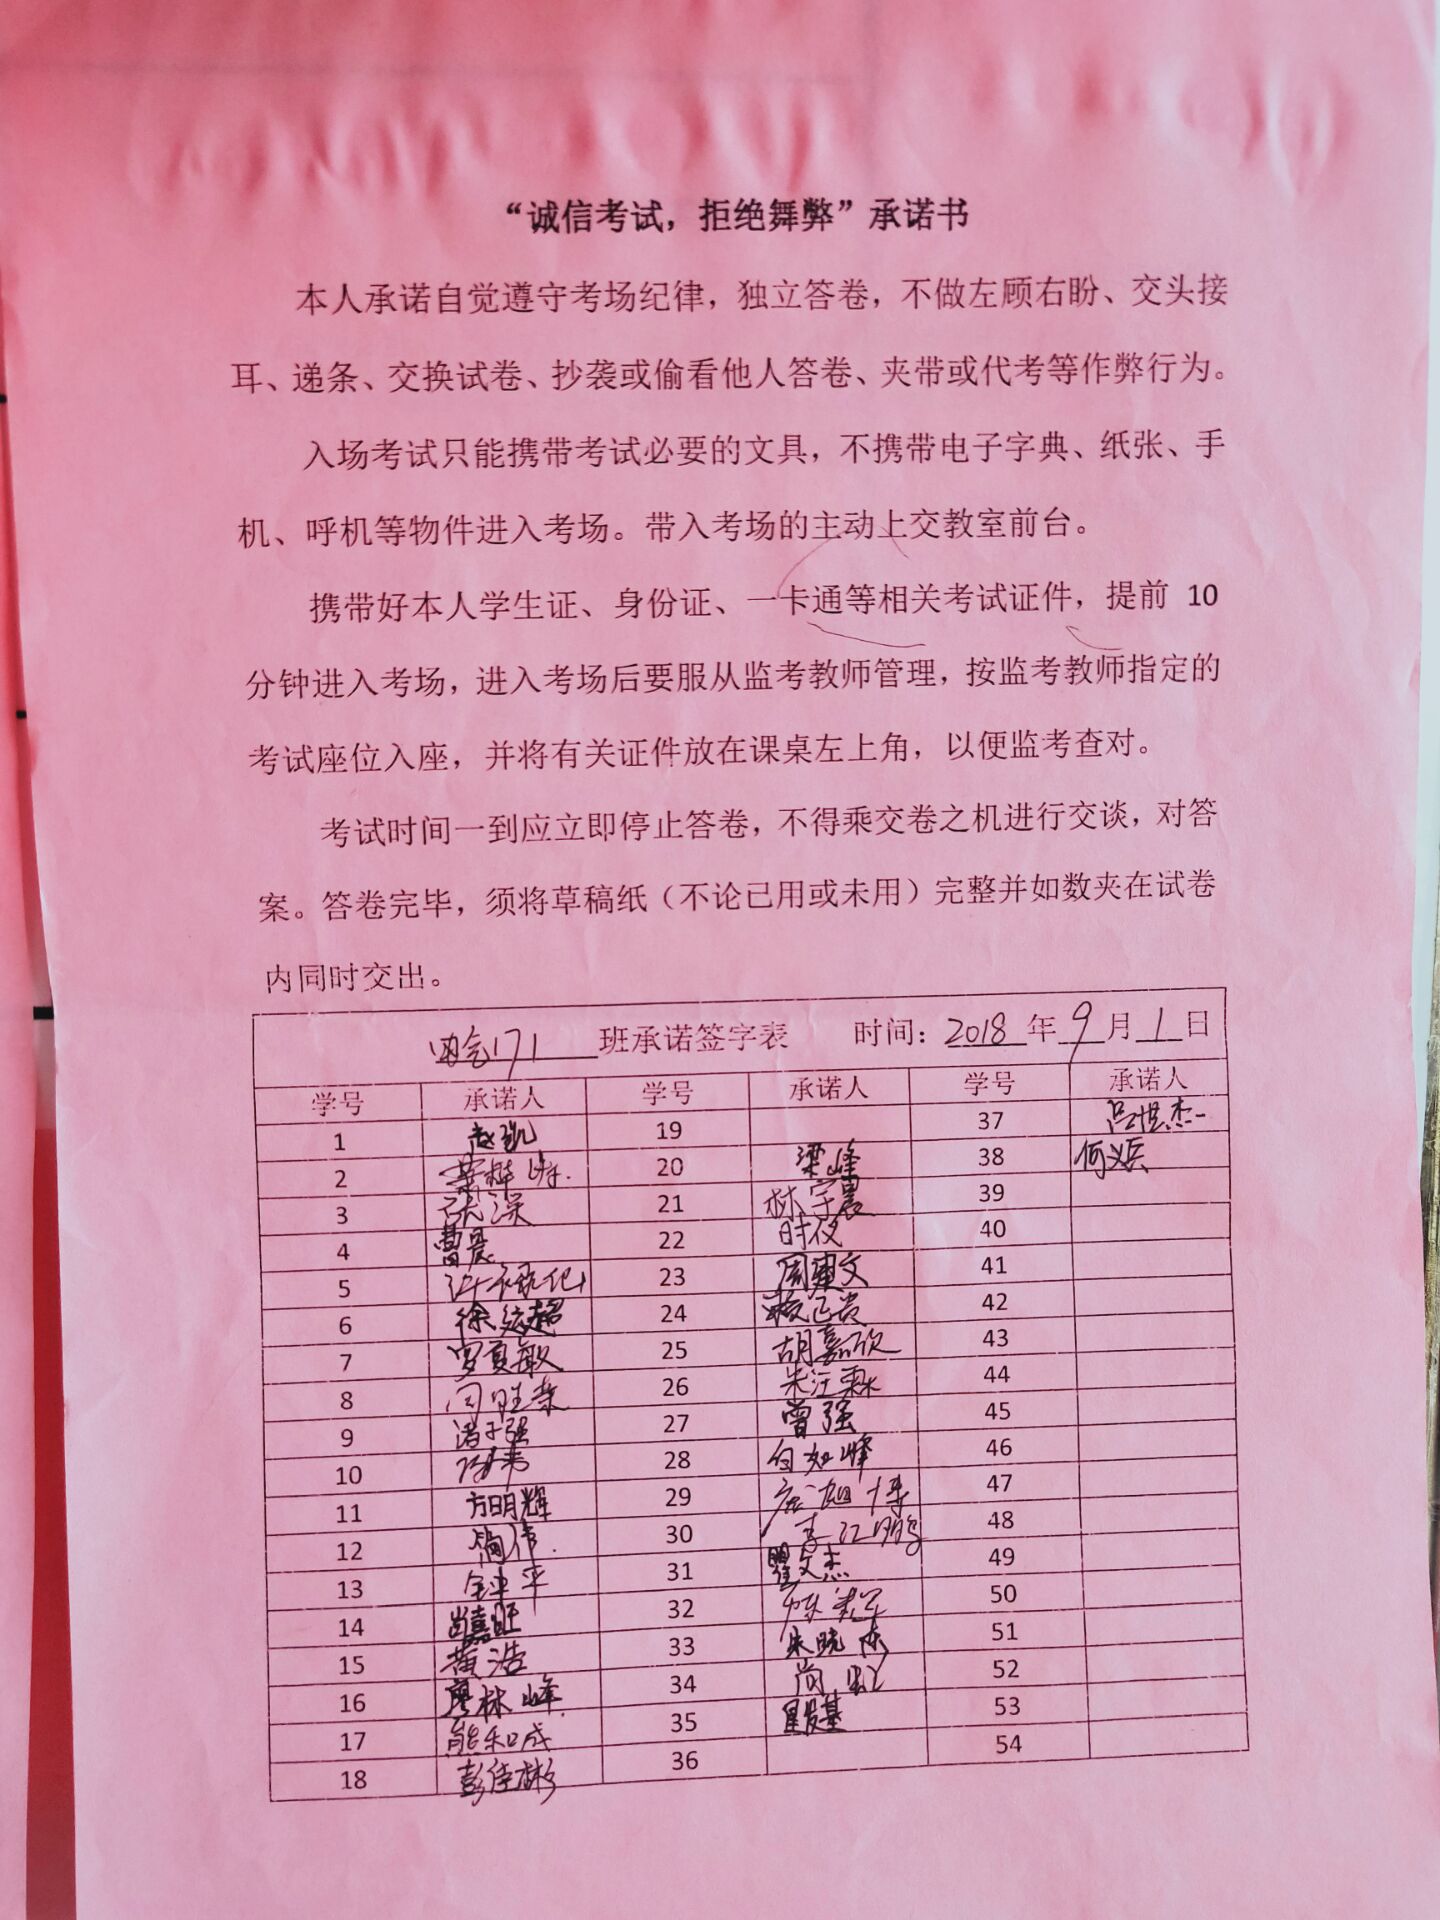 “诚信考试，拒绝舞弊”承诺书
本人承诺自觉遵守考场纪律，独立答卷，不做左顾右盼、交头接
耳、递条、交换试卷、抄袭或偷看他人答卷、夹带或代考等作弊行为。
入场考试只能携带考试必要的文具，不携带电子字典、纸张、手
机、呼机等物件进入考场。带入考场的主动上交教室前台。
携带好本人学生证、身份证、一卡通等相关考试证件，提前 10
分钟进入考场，进入考场后要服从监考教师管理，按监考教师指定的
考试座位入座，并将有关证件放在课桌左上角，以便监考查对。
考试时间一到应立即停止答卷，不得乘交卷之机进行交谈，对答
案。答卷完毕，须将草稿纸（不论已用或未用）完整并如数夹在试卷
内同时交出。
171 班承诺签字表 时间：2018 年 9 月 1 日
学号 承诺人 学号 承诺人 学号 承诺人
1 赵凯 19 37
2 20 梁峰 38 何义兵
3 张深 21 林宇晨 39
4 曹晨 22 40
5 23 周建文 41
6 徐运超 24 42
7 罗夏敏 25 胡嘉欣 43
8 26 朱汪霖 44
9 27 曾强 45
10 28 白如峰 46
11 方明辉 29 47
12 30 李江鹏 48
13 31 瞿文杰 49
14 尚嘉旺 32 50
15 黄浩 33 朱晓东 51
16 廖林峰 34 52
17 熊和成 35 53
18 彭佳彬 36 54